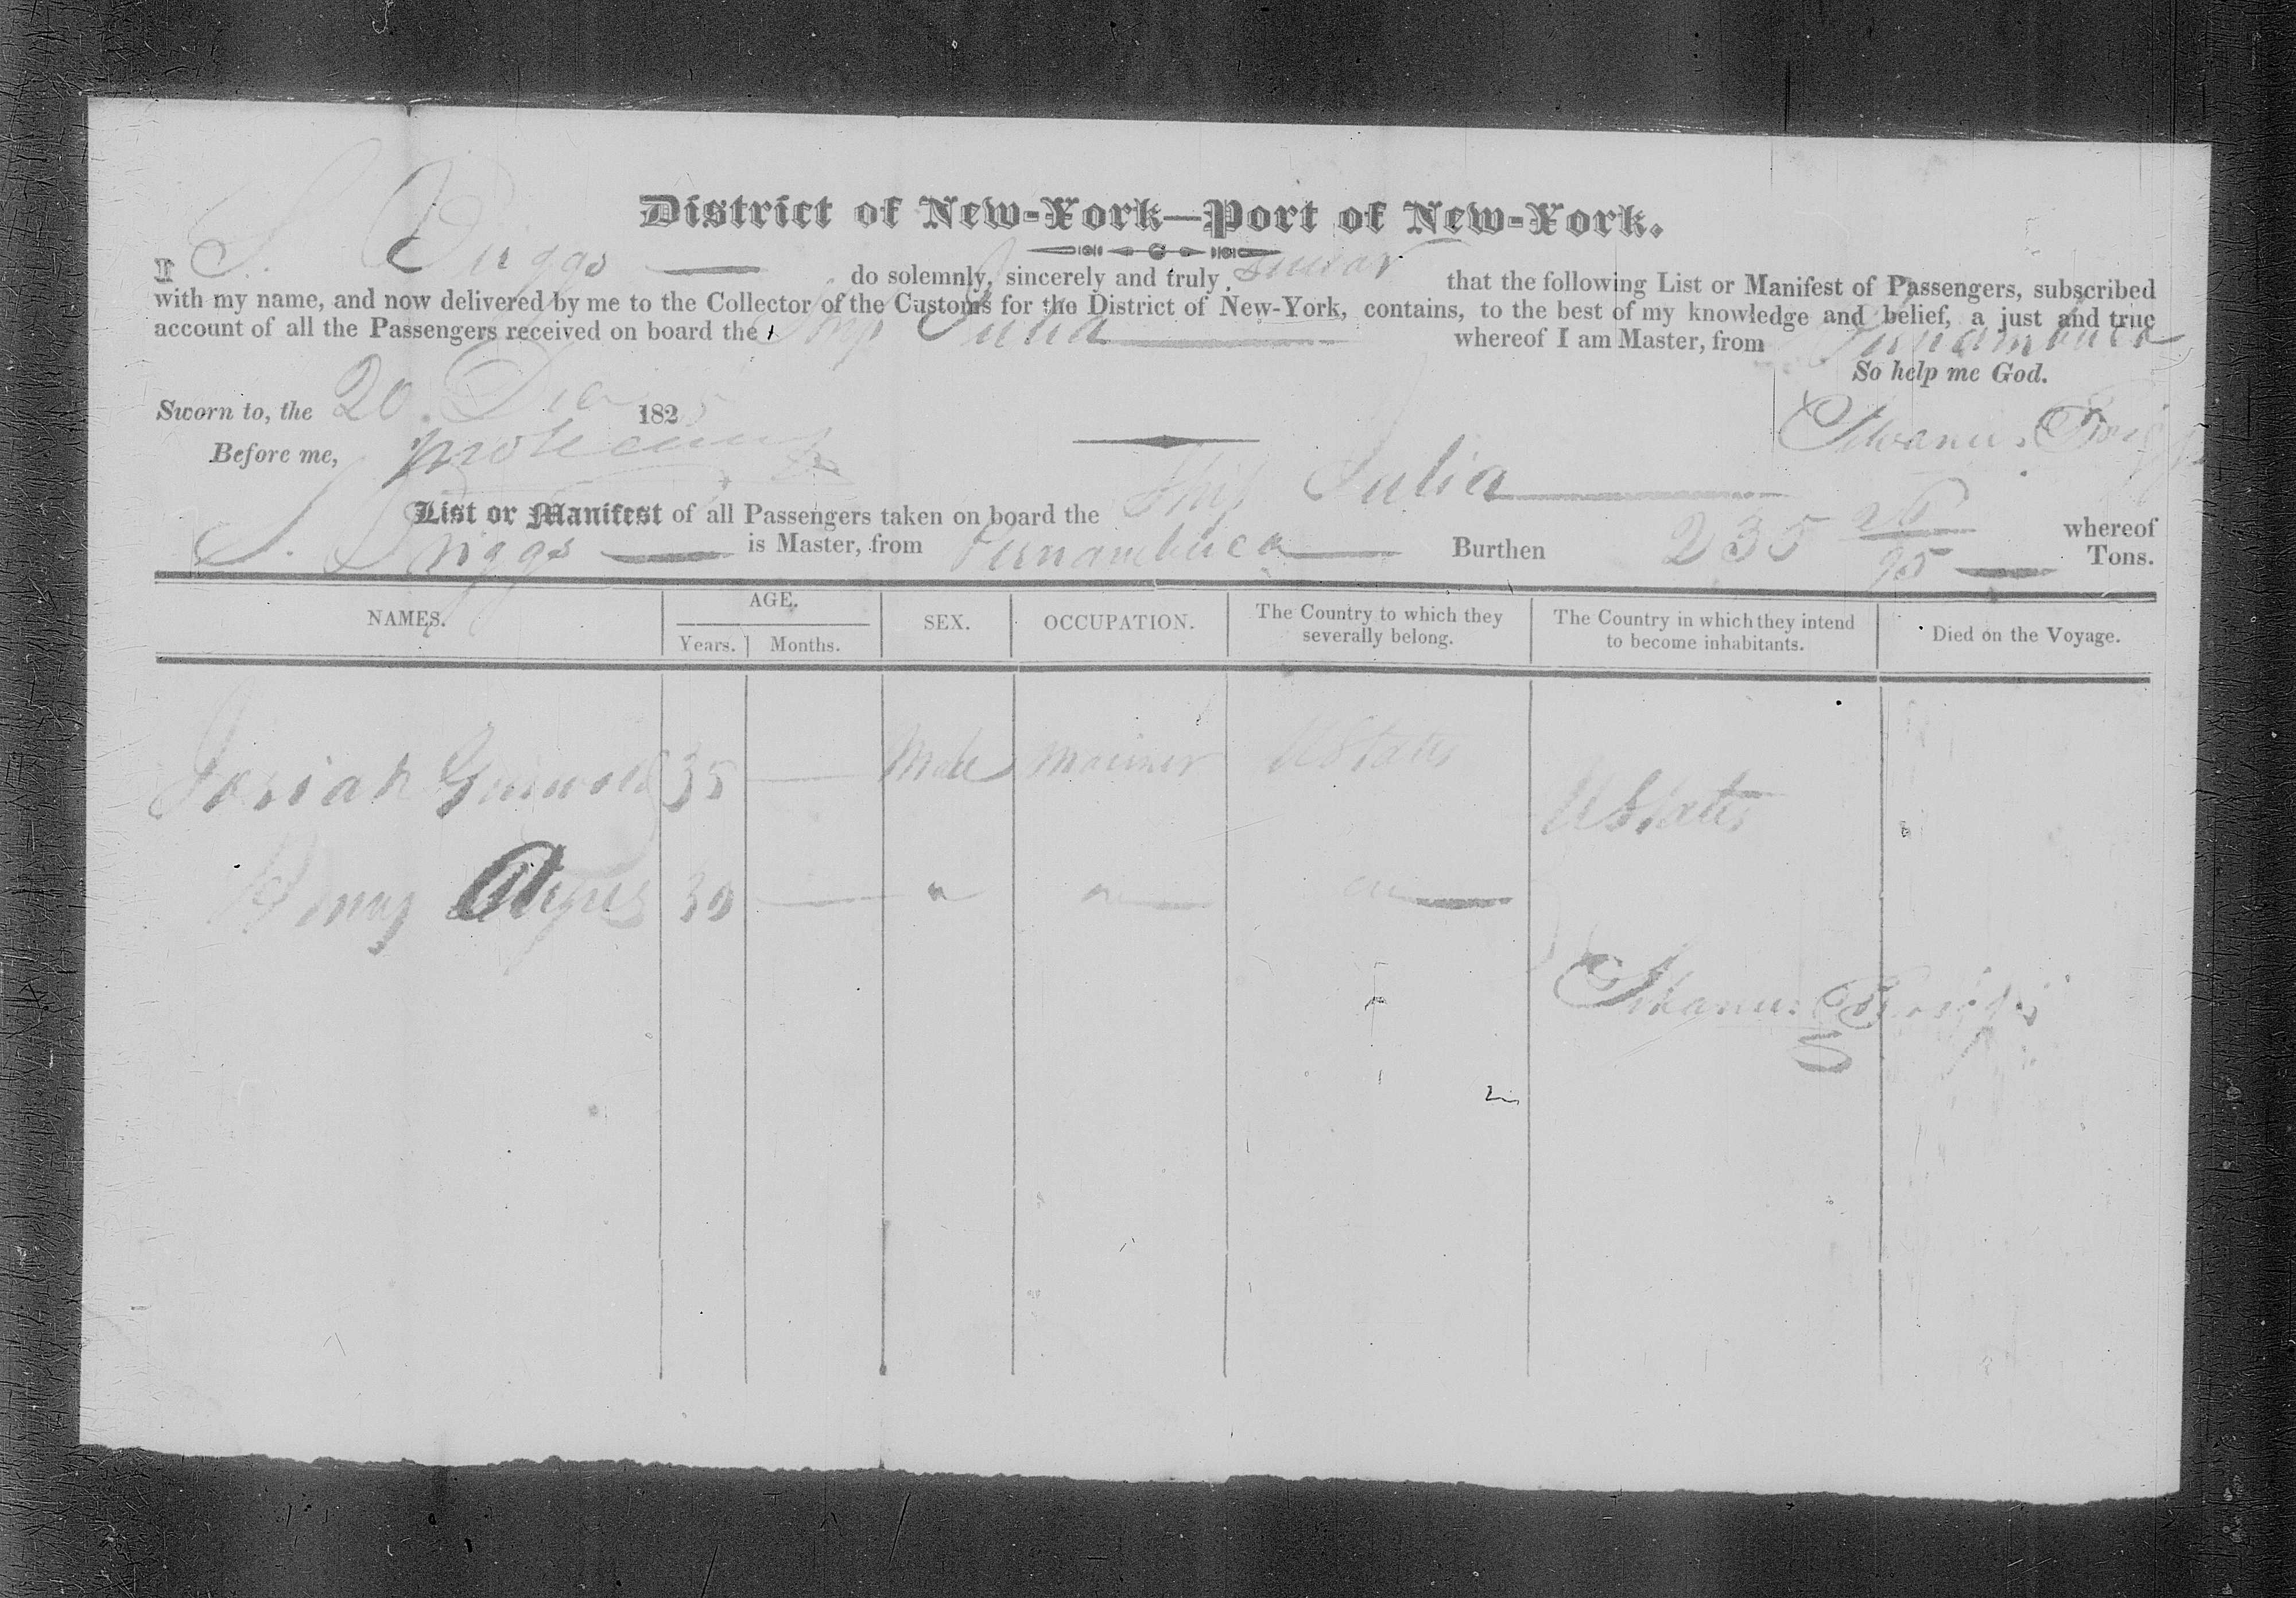 District of New-York—Port of New-York.
I S. Briggs do solemnly, sincerely and truly swear that the following List or Manifest of Passengers, subscribed
with my name, and now delivered by me to the Collector of the Customs for the District of New-York, contains, to the best of my knowledge and belief, a just and true
account of all the Passengers received on board the Ship Julia whereof I am Master, from Pernambuco
So help me God.
Sworn to, the 20 Dec 1825
Silvanus Briggs
Before me,
List or Manifest of all Passengers taken on board the Ship Julia whereof
S. Briggs is Master, from Pernambuco Burthen 235 26/95 Tons.
NAMES. AGE. SEX. OCCUPATION. The Country to which they severally belong. The Country in which they intend to become inhabitants. Died on the Voyage.
Years. Months.
Josiah Griswold 35 — Male Mariner UStates UStates
30 — " "
Silvanus Briggs